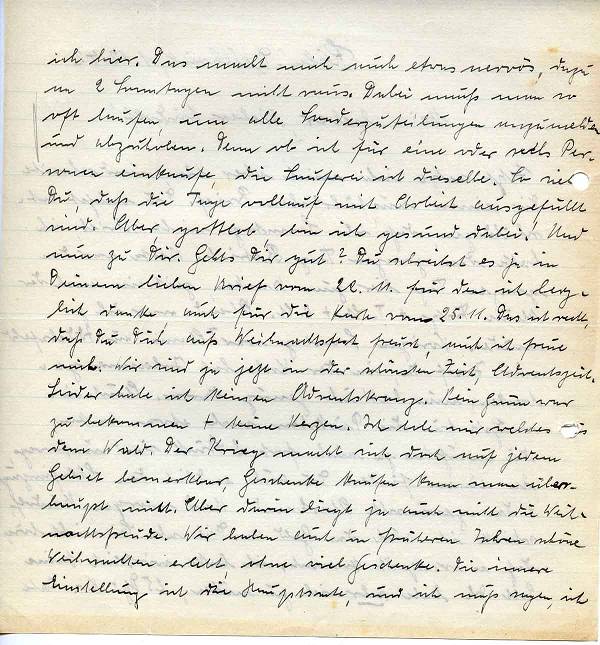 ich hier. Das macht mich auch etwas nervös, dazu
an 2 Sonntagen nicht raus. Dabei muß man so
oft laufen, um alle Sonderzuteilungen anzumelden
und abzuholen. Denn ob ich für eine oder sechs Per-
sonen einkaufe, die Lauferei ist dieselbe. So siehst
Du, daß die Tage vollauf mit Arbeit ausgefüllt
sind. Aber gottlob bin ich gesund dabei. Und
nun zu Dir. Gehts Dir gut? Du schreibst es ja in
Deinem lieben Brief vom 22. 11. für den ich herz-
lich danke auch für die Karte vom 25. 11. Das ist recht,
daß Du Dich aufs Weihnachtsfest freust, auch ich freue
mich. Wir sind ja jetzt in der schönsten Zeit, Adventszeit.
Leider habe ich keinen Adventskranz. Kein Grün war
zu bekommen + keine Kerzen. Ich hole mir welches aus
dem Wald. Der Krieg macht sich doch auf jedem
Gebiet bemerkbar, Geschenke kaufen kann man über-
haupt nicht. Aber darin liegt ja auch nicht die Weih-
nachtsfreude. Wir haben auch in früheren Jahren schöne
Weihnachten erlebt, ohne viel Geschenke. Die innere
Einstellung ist die Hauptsache, und ich muß sagen, ich